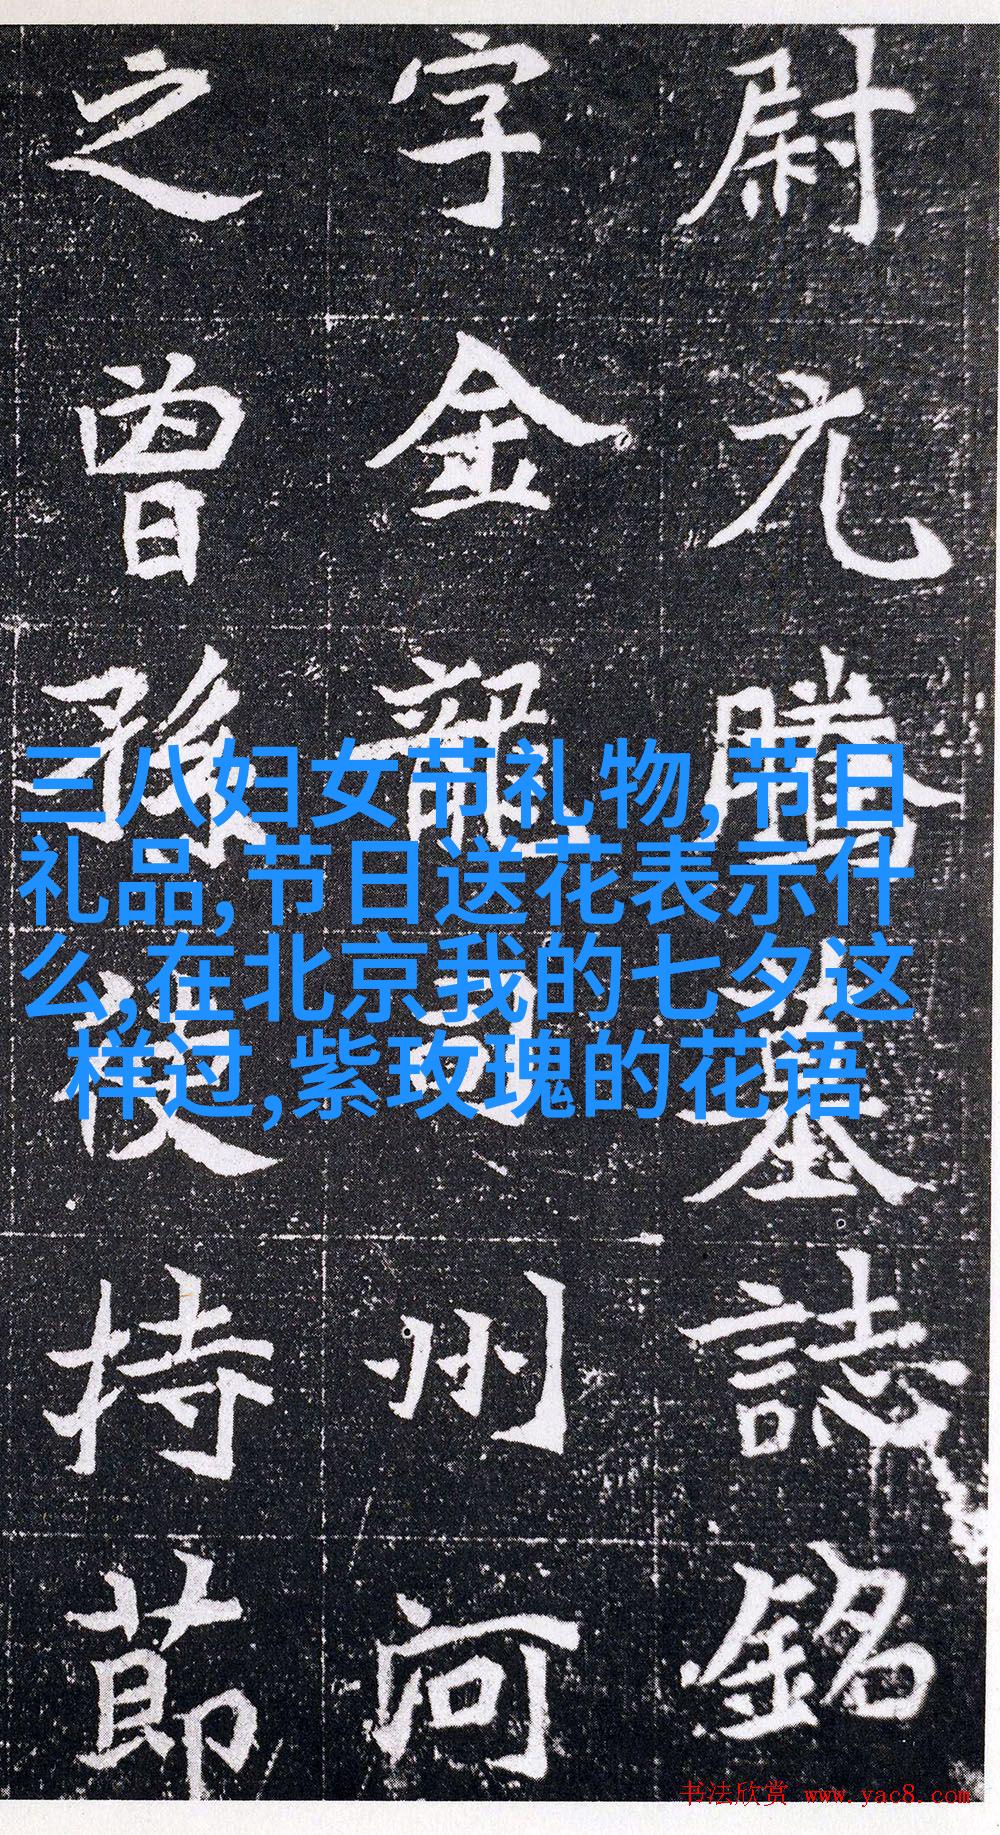 尉元騰墓誌銘
字金龍司州河
之曾孫使持節
三八妇女节礼物,节日
礼品,节日送花表示什
么,在北京我的七夕这
样过,紫玫瑰的花语
书法欣赏 www.yac8.com